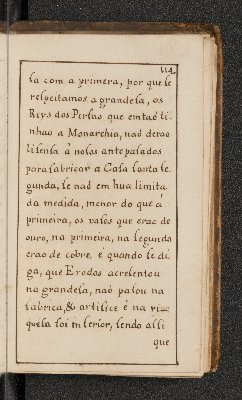 114
sa com a primera, por que se
respeitamos a grandesa, os
Reys dos Persas que emtaõ ti
nhao a Monarchia, naõ deraõ
lisensa à nosos antepasados
para fabricar a Casa santa se
gunda, se naõ em hua limita
da medida, menor do que á
primeira, os vasos que eraõ de
ouro, na primeira, na segunda
eraõ de cobre, é quando se di
ga, que Erodes acresentou
na grandesa, naõ pasou na
fabrica, & artifice é na
quesa foi inferior, sendo alli
que